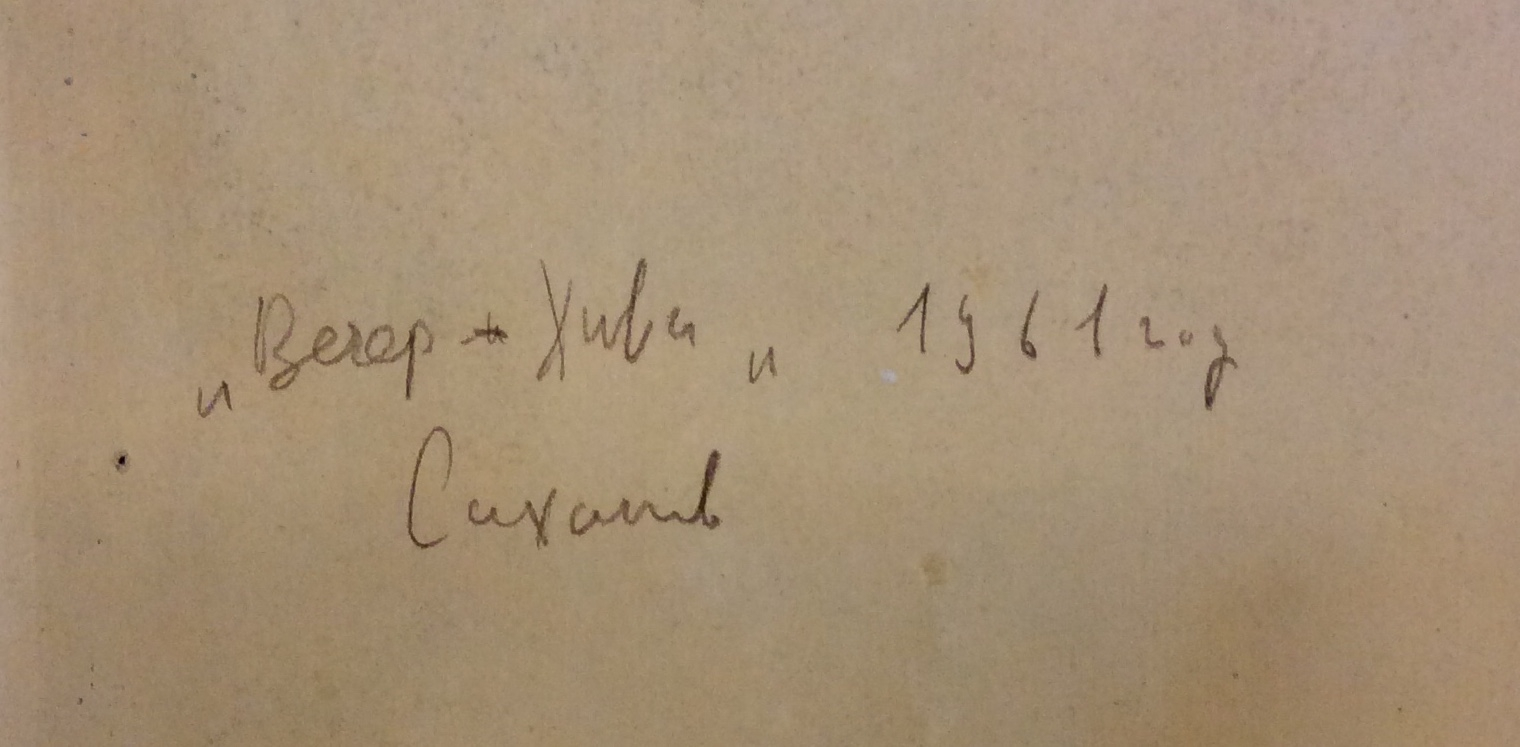 „Вечер + Хива„ 1961 год